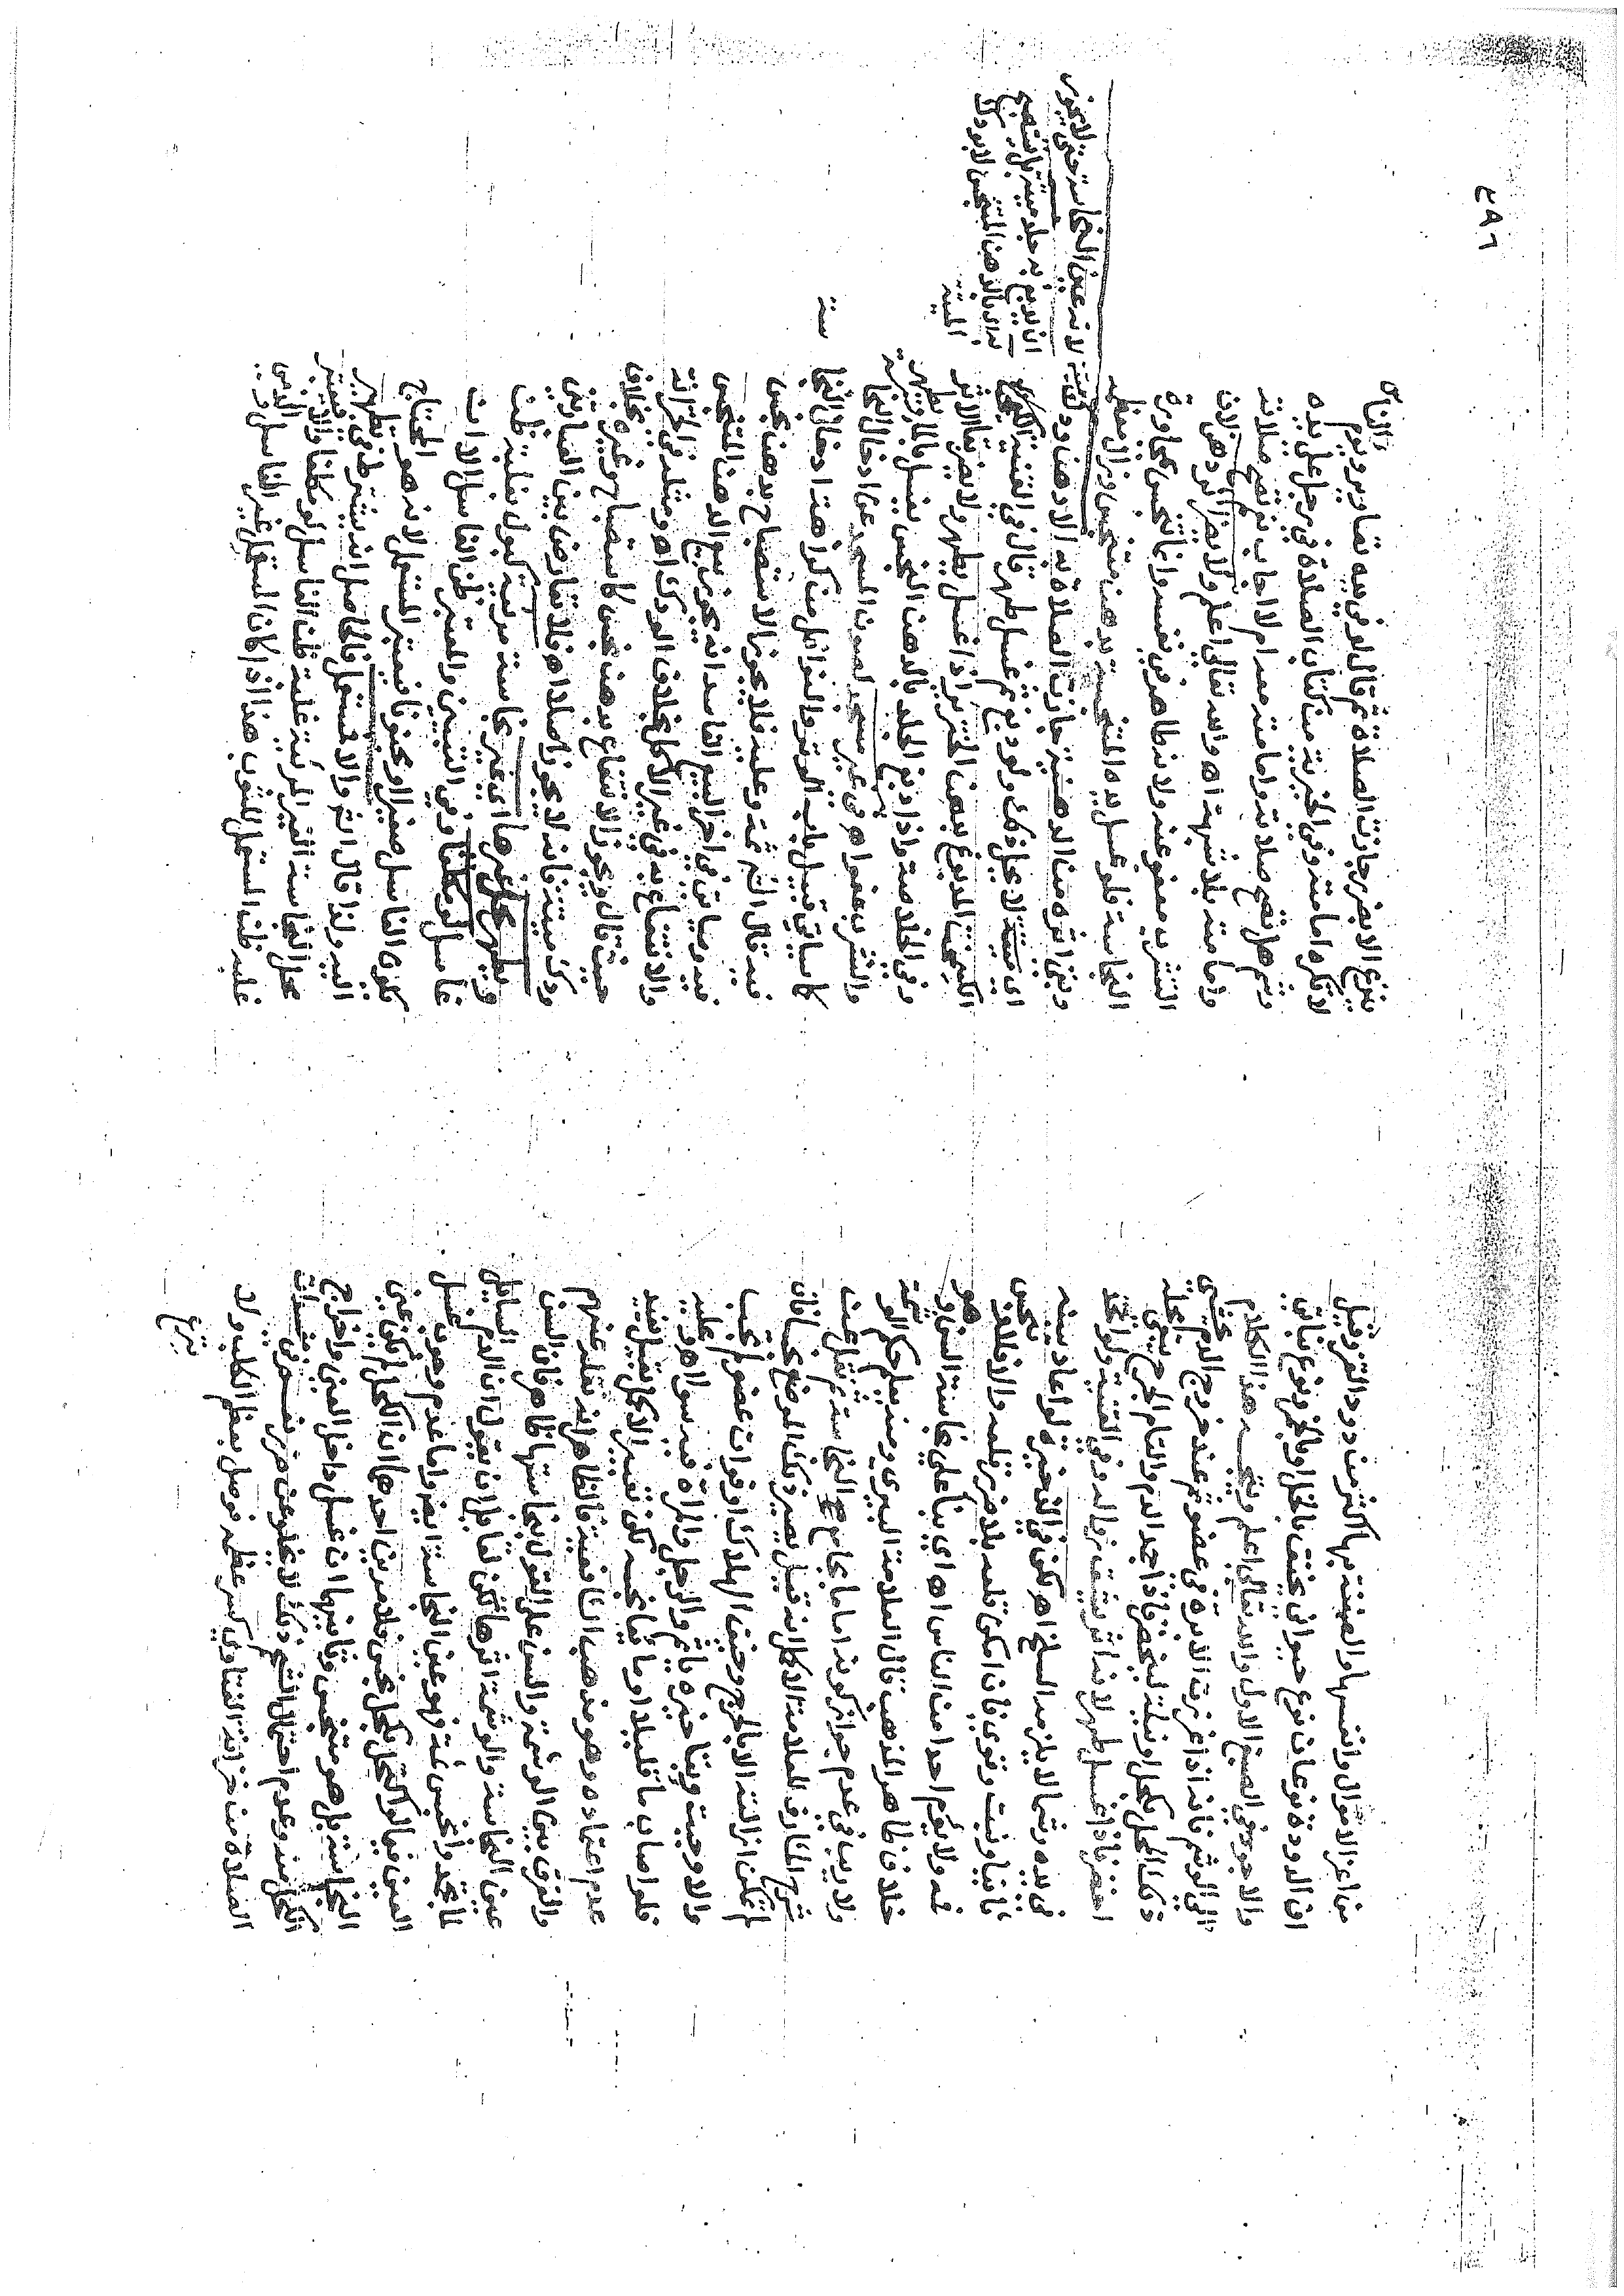 من اعز الاموال وانفسها والصبغة بها اكثر من دود القز وقيل
ان الدودة نوعان نوع حيواني يخنق بالخل او بالخمر ونوع نباتي
والاجود في الصبغ الاول والله تعالى اعلم هذا الكلام
الى الوشم فانه اذا غرزت الابرة في عضو ثم عند خروج الدم حشي
ذلك المحل بكحل او نيلة ليخضر فاذا جمد الدم والتام الجرح يبقى محله
اخضر فاذا غسل طهر لانه اثر يشق زواله وفي القنية ولو اتخذ
في يده وشما لا يلزمه السلخ اه لكن في الذخيرة لو اعاد سنه
ثانيا ونبت وقوي فان امكن قلعه بلا ضرر قلعه والا فلا وتنجس
فمه ولا يؤم احدا من الناس اه اي بناء على نجاسة السن وهو
خلاف ظاهر المذهب قال العلامة البيري ومنه يعلم حكم الوشمة
ولا ريب في عدم جواز كونه اماما بجامع النجاسة ثم نقل عن
شرح المشارق للعلامة الاكمل انه قيل يصير ذلك الموضع نجسا فان
لم يمكن ازالته الا بالجرح وخيف الهلاك او فوات عضو لم تجب
والا وجبت وبتاخيره ياثم والرجل والمراة فيه سواء اه عليه
فلو اصاب ماء قليلا او مائعا نجسه لكن تعبير الاكمل بقيل يفيد
عدم اعتماده وهو مذهب الشافعية فالظاهر انه نقله عنهم
والفرق بين الوشمة والسن على القول بنجاستها ظاهر فان السن
عين النجاسة والوشمة اثرها لكن لقائل ان يقول ان الدم السائل
لما تجمد وانحبس ثمة فهو عين النجاسة ايضا واما عدم وجوب غسل
العين فيما لو اكتحل بكحل نجس فلامرين احدهما ان الكحل لم يكن عين
النجاسة بل هو متنجس وثانيهما ان غسل داخل العين واخراج
الكحل منه وعدم احتمال ذلك لا يخلو عن
الصلاة من خزانة الفتاوى كسر عظمه فوصل بعظم الكلب ولا
ينزع
٢٩٦
ينزع الا بضرر جازت الصلاة ثم قال لو في يده تصاوير ويؤم الناس
لا تكره امامته وفي الخيرية من كتاب الصلاة في رجل على يده
وشم هل تصح صلاته وامامته معه ام لا اجاب نعم تصح صلاته
وامامته بلا شبهة اه والله تعالى اعلم ولا يضر اثر دهن لان
التشرب معفو عنه ولانه طاهر في نفسه وانما تنجس بمجاورة
النجاسة فلو غسل يده المتنجسة بدهن متنجس وزال
وبقي اثره من الدهنية جازت الصلاة به الا دهن ودك ميتة
لانه عين النجاسة حتى لا يجوز
ان يدبغ به جلد ميتة بل يستصبح
به اي بالدهن المتنجس لا بودك
الميتة
اي ميتة لا يحل ذلك ولو دبغ ثم غسل طهر قال في القنية
الكيمخت المدبوغ بدهن الخنزير اذا غسل يطهر ولا يضر بقاء الاثر
وفي الخلاصة واذا دبغ الجلد بالدهن النجس يغسل بالماء ويطهر
والتشرب عفو اه في غير مسجد لصون المسجد عن ادخال النجا
كما سياتي قبيل باب الوتر والنوافل من كراهة ادخال النجا سة
فيه قال الش ثمة وعليه فلا يجوز الاستصباح بدهن نجس
فيه وسياتي في اخر البيع الفاسد انه يجوز بيع الدهن المتنجس
والانتفاع به في غير الاكل بخلاف الودك اه ومثله في الخزانة
حيث قال ويجوز الانتفاع بدهن نجس كاستصباح وغيره بخلاف
ودك ميتة فانه لا يجوز اصلا اه فلا تعارض بين العبارتين
ويطهر محل غيرها اي غير نجاسة مرئية كبول بغلبة ظن
غاسل لو مكلفا وفي التبيين والمعتبر ظن الغاسل الا ان
يكون الغاسل صغيرا او مجنونا فيعتبر المستعمل لانه هو المحتاج
اليه ولذا قال الش والا فمستعمل فالحاصل انه يشترط في تطهير
محل النجاسة الغير المرئية غلبة ظن الغاسل لو مكلفا والا فيعتبر
غلبة ظن المستعمل للثوب هذا اذا كان المستعمل غير الغاسل